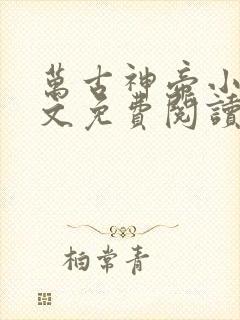 萬古神帝小
文免費閱讀
柏常青